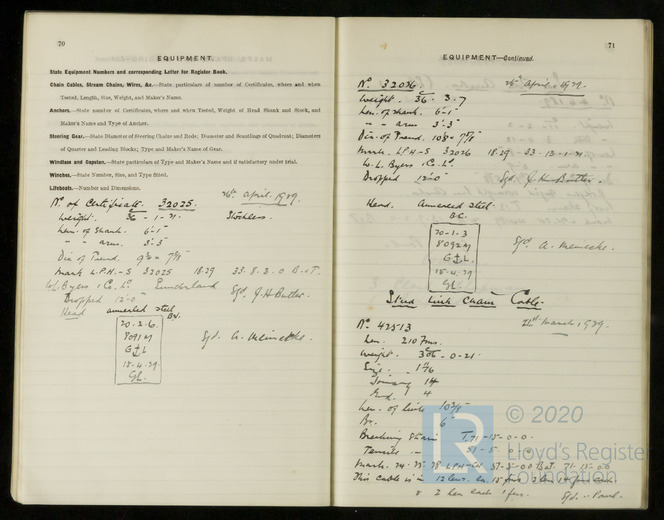 70
EQUIPMENT.
State Equipment Numbers and corresponding Letter for Register Book.
Chain Cables, Stream Chains, Wires, &c.—State particulars of number of Certificates, where and when
Tested, Length, Size, Weight, and Maker's Name.
Anchors.—State number of Certificates, where and when Tested, Weight of Head Shank and Stock, and
Maker's Name and Type of Anchor.
Steering Gear.—State Diameter of Steering Chains and Rods; Diameter and Scantlings of Quadrant; Diameters
of Quarter and Leading Blocks; Type and Maker's Name of Gear.
Windlass and Capstan.—State particulars of Type and Maker's Name and if satisfactory under trial.
Winches.—State Number, Size, and Type fitted.
Lifeboats.—Number and Dimensions.
26th April. 1939.
No of Certificate 32025.
Stockless
Weight. 36 - 1 - 21.
Len. of Shank. 6'-1"
" " arm 3'-3"
Dia of Trend.
Mark L.P.H.-S 32025 18.29 33.8.3.0
W.L. Byers & Co Ld Sunderland
Sgd. J.H. Butter.
Dropped 12'-0"
Head annealed steel.
20.2.6.
8091M
G L
18-4-39.
GL.
Sgd. A. Meincke.
71
EQUIPMENT—Continued.
No 32026
26th April. 1939.
Weight. 36. 3. 7
Len. of shank. 6'-1"
" " arm 3'-3"
Dia. of Trend.
Mark. L.P.H-S 32026 18.29
W.L. Byers & Co Ld
Dropped 12'-0"
Sgd. J.H. Butter.
Head. Annealed steel.
20-1-3
8092M
G L
18-4-39
GL.
Sgd A. Meincke.
Stud Link Chain Cable.
No 42513
21st March, 1939.
Len. 210 Fms.
Weight. 306-0-21.
Size
End.
Len. of link
Br. 6"
Breaking Strain T.71-15-0-0.
Tensile " 51-5-0-0
This Cable is in 12 lens. ea. 15 fms
© 2020
LR
Lloyd's Register
Foundation